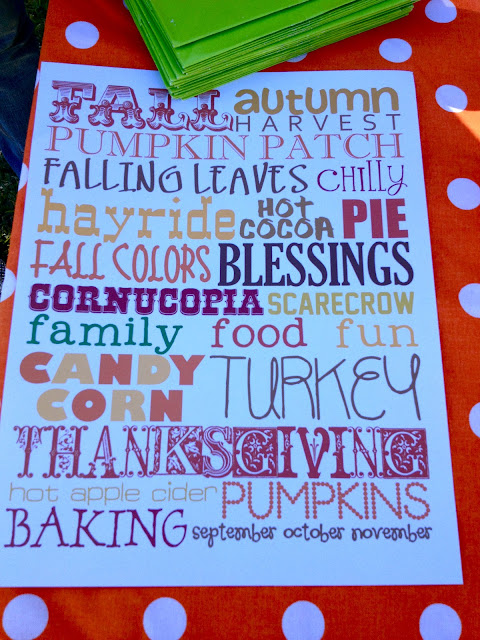 FALL autumn
HARVEST
PUMPKIN PATCH
FALLING LEAVES CHILLY
hayride HOT COCOA PIE
FALL COLORS BLESSINGS
CORNUCOPIA SCARECROW
family food fun
CANDY CORN TURKEY
THANKSGIVING
hot apple cider PUMPKINS
BAKING september october november